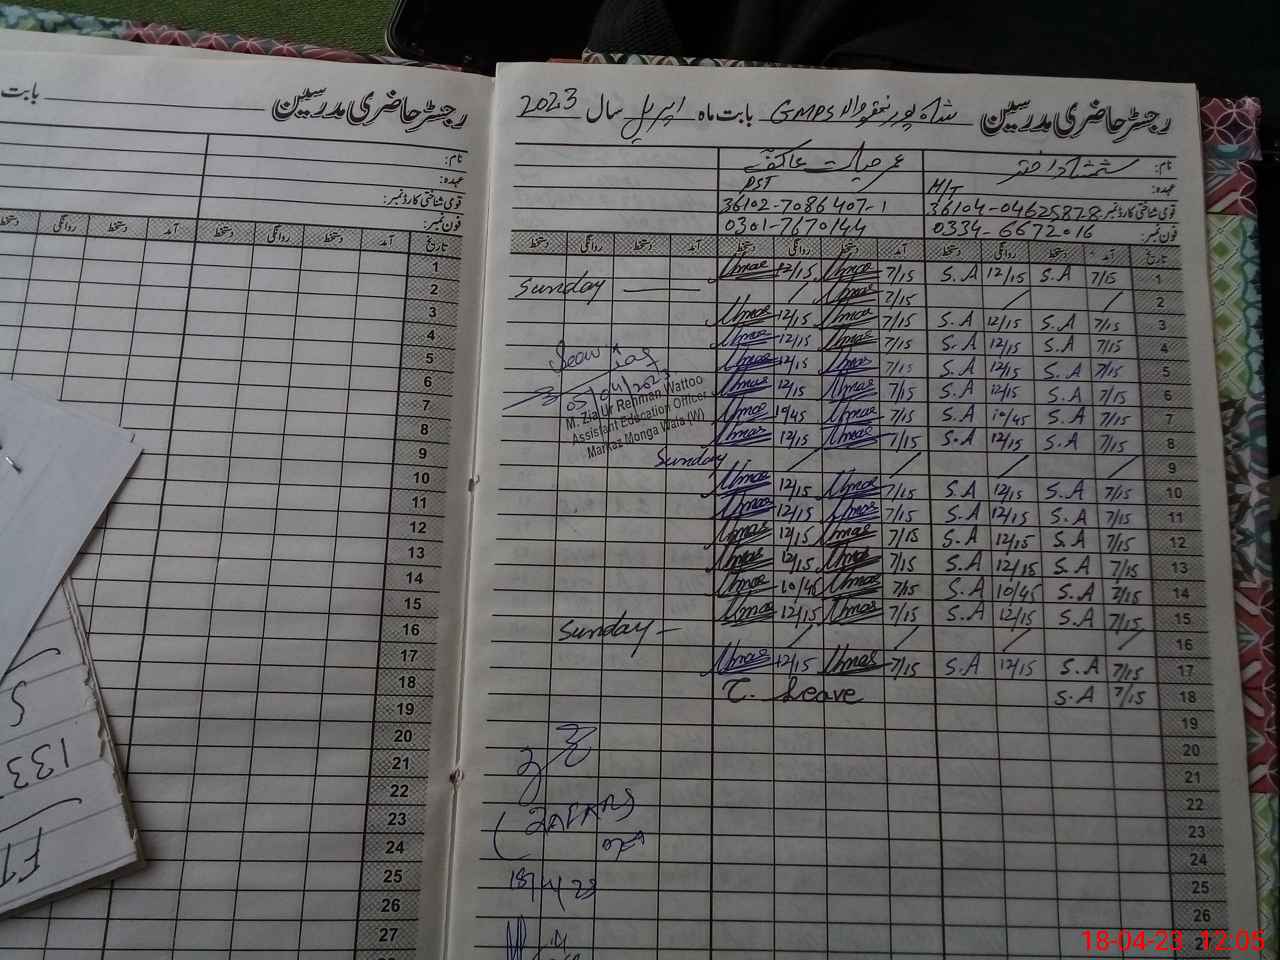 رجسٹر حاضری مدرسین شاہ پور GMPS بابت ماہ اپریل سال 2023
نام: شمشاد اختر عمر حیات
عہدہ: H/T PST
قومی شناختی کارڈ نمبر: 36104-0462587-8 36102-7086407-1
فون نمبر: 0334-6672016 0301-7670144
تاریخ آمد دستخط روانگی دستخط آمد دستخط روانگی دستخط آمد دستخط روانگی دستخط
1 7/15 S.A 12/15 S.A 7/15 Umar 12/15 Umar
2 7/15 Umar Sunday
3 7/15 S.A 12/15 S.A 7/15 Umar 12/15 Umar
4 7/15 S.A 12/15 S.A 7/15 Umar 12/15 Umar
5 7/15 S.A 12/15 S.A 7/15 Umar 12/15 Umar
6 7/15 S.A 12/15 S.A 7/15 Umar 12/15 Umar
7 7/15 S.A 10/45 S.A 7/15 Umar 10/45 Umar
8 7/15 S.A 12/15 S.A 7/15 Umar 12/15 Umar
05/04/2023
M. Zia Ur Rehman Wattoo
Assistant Education Officer
Markaz Monga Wala (W)
9 Sunday
10 7/15 S.A 12/15 S.A 7/15 Umar 12/15 Umar
11 7/15 S.A 12/15 S.A 7/15 Umar 12/15 Umar
12 7/15 S.A 12/15 S.A 7/15 Umar 12/15 Umar
13 7/15 S.A 12/15 S.A 7/15 Umar 12/15 Umar
14 7/15 S.A 10/45 S.A 7/15 Umar 10/45 Umar
15 7/15 S.A 12/15 S.A 7/15 Umar 12/15 Umar
16 Sunday
17 7/15 S.A 12/15 S.A 7/15 Umar 12/15 Umar
18 7/15 S.A C. Leave
19
20
21
22
23
24
25
26
27
رجسٹر حاضری مدرسین بابت
نام:
عہدہ:
قومی شناختی کارڈ نمبر:
فون نمبر:
تاریخ آمد دستخط روانگی دستخط آمد دستخط روانگی دستخط
1
2
3
4
5
6
7
8
9
10
11
12
13
14
15
16
17
18
19
20
21
22
23
24
25
26
27
133
18-04-23 12:05